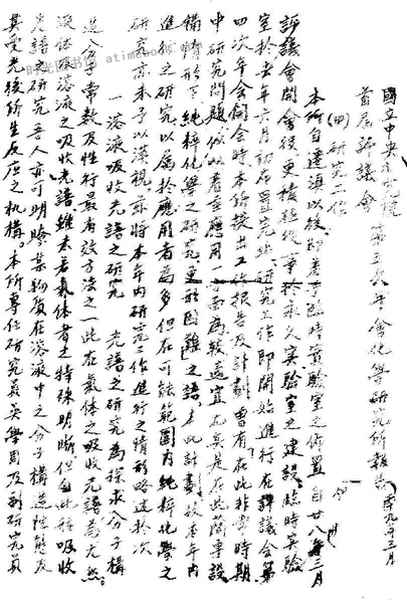 國立中央研究院
首屆評議會第五次年會化學研究所報告 廿九年三月
(甲)研究工作
本所自遷滇以後,即着手臨時實驗室之佈置,自廿八年三月
評議會開會後,更積極從事於永久實驗室之建設,臨時實驗
室於去年六月初在昆完竣,研究工作即開始進行,在評議會第
四次年會開會時,本所提出工作報告及計劃,曾有「在此非常時期
中,研究問題似以着重應用一方面為較適宜,尤其是在此簡專設
備情形下,純粹化學之研究更形困難」之語。本此計劃,故在年內
進行之研究,以屬於應用者為多,但在可能範圍內,純粹化學之
研究亦未予以漠視。茲將本年內研究工作進行之情形略述於次
一 溶液吸收光譜之研究 光譜之研究為探求分子構
造分子常數及性行最有效方法之一,此在氣體之吸收光譜為尤然。
液體及溶液之吸收光譜,雖未若氣體者之特殊明晰,但自此種吸收
光譜之研究,吾人亦可明瞭某物質在溶液中之分子構造狀態及
其受光後所生反應之机構。本所專任研究員吳學周及副研究員